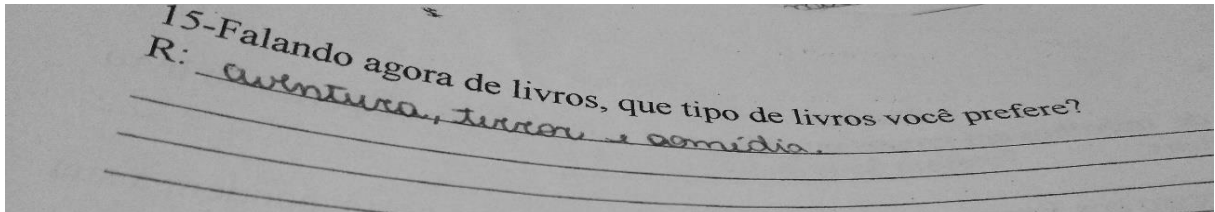 15-Falando agora de livros, que tipo de livros você prefere?
R: aventura, terror e comídia.